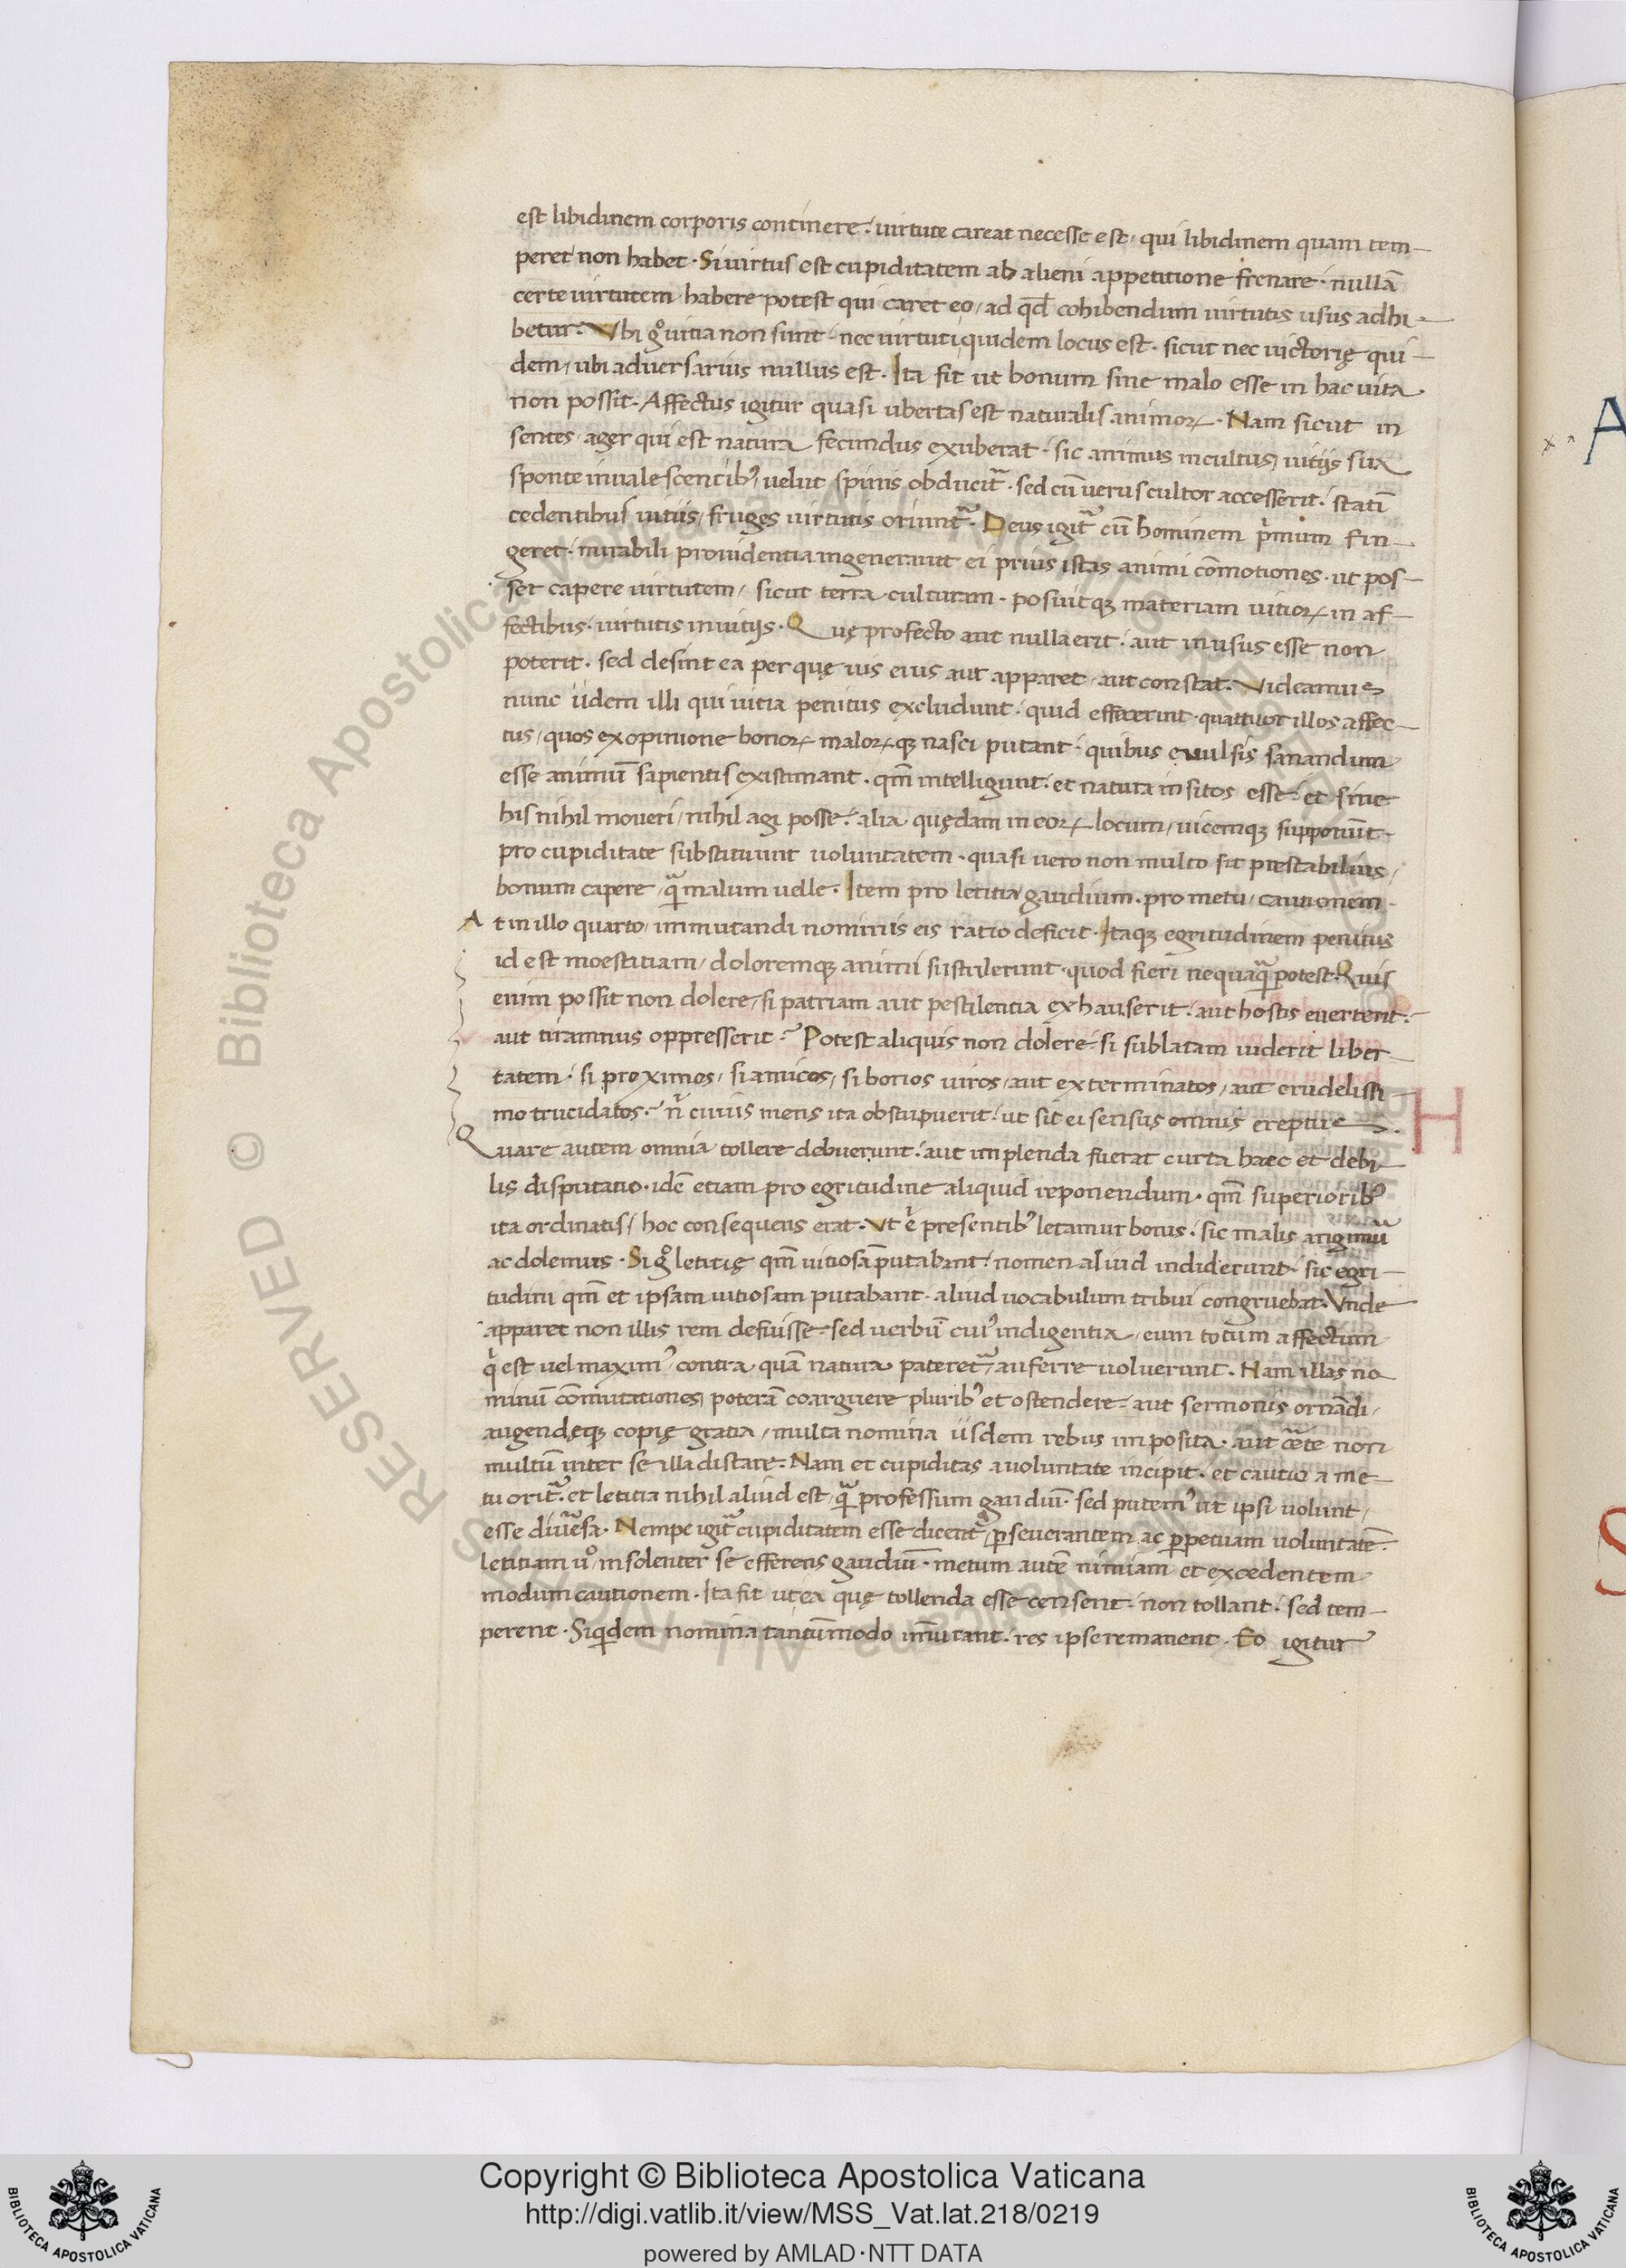 est libidinem corporis continere. uirtute careat necesse est, qui libidinem quam tem-
peret non habet. Si uirtus est cupiditatem ab alieni appetitione frenare. nullā
certe uirtutem habere potest qui caret eo, ad qd̄ cohibendum uirtutis usus adhi-
betur. Vbi gͦ uitia non sunt. nec uirtuti quidem locus est. sicut nec uictorię qui-
dem, ubi aduersarius nullus est. Ita fit ut bonum sine malo esse in hac uita
non possit. Affectus igitur quasi ubertas est naturalis animoꝝ. Nam sicut in
sentes, ager qui est natura fecundus exuberat. sic animus incultus, uitijs sua
sponte inualescentibꝰ, uelut spinis obducit᷑. sed cū uerus cultor accesserit. statī
cedentibus uitiis, fruges uirtutis oriunt᷑. Deus igit᷑ cū hominem pͥmum fin-
geret. mirabili prouidentia ingenerauit ei prius istas animi cōmotiones. ut pos-
set capere uirtutem, sicut terra culturam. posuitqꝫ materiam uitioꝝ in af-
fectibus. uirtutis in uitijs. Quę profecto aut nulla erit. aut in usus esse non
poterit. sed desint ea per quę uis eius aut apparet, aut constat. Videamus
nunc iidem illi qui uitia penitus excludunt. quid effecerint. quattuor illos affec-
tus, quos ex opinione bonoꝝ maloꝝqꝫ nasci putant. quibus euulsis sanandum
esse animū sapientis existimant. qm̄ intelligunt. et natura insitos esse. et sine
his nihil moueri, nihil agi posse. alia quędam in eoꝝ locum, uicemqꝫ supponūt.
pro cupiditate substituunt uoluntatem. quasi uero non multo sit prestabilius,
bonum capere, qᷓ malum uelle. Item pro letitia gaudium. pro metu, cautionem.
At in illo quarto, immutandi nominis eis ratio deficit. Itaqꝫ egritudinem penitus
id est moestitiam, doloremqꝫ animi sustulerunt. quod fieri nequaqᷓ potest. Quis
enim possit non dolere, si patriam aut pestilentia exhauserit. aut hostis euerterit.
aut tirannus oppresserit? Potest aliquis non dolere. si sublatam uiderit liber-
tatem. si proximos, si amicos, si bonos uiros, aut exterminatos, aut crudelissi-
mo trucidatos? n̄ cuius mens ita obstupuerit. ut sit ei sensus omnis ereptus.
H
Quare autem omnia tollere debuerunt. aut implenda fuerat curta haec et debi-
lis disputatio. idē etiam pro egritudine aliquid reponendum. qm̄ superioribꝰ
ita ordinatis, hoc consequens erat. Vt ē presentibꝰ letamur bonis. sic malis angimur
ac dolemus. Si gͦ letitię qm̄ uitiosā putabant. nomen aliud indiderunt. sic egri-
tudini qm̄ et ipsam uitiosam putabant. aliud uocabulum tribui congruebat. Vnde
apparet non illis rem defuisse. sed uerbū cuiꝰ indigentia, eum totum affectum
qͥ est uel maximꝰ, contra quā natura pateret᷑ auferre uoluerunt. Nam illas no
minū cōmutationes, poterā coarguere pluribꝰ et ostendere. aut sermonis ornādi,
augendęqꝫ copię gratia, multa nomina iisdem rebus imposita. aut cēte non
multū inter se illa distare. Nam et cupiditas a uoluntate incipit. et cautio a me-
tu orit᷑. et letitia nihil aliud est, qᷓ professum gaudiū. sed putemꝰ ut ipsi uolunt,
esse diūsa. Nempe igit᷑ cupiditatem esse dicent, ꝑseuerantem ac ꝑpetuam uoluntatē.
letitiam uͦ, insolenter se efferens gaudiū. metum autē nimiam et excedentem
modum cautionem. Ita fit ut ea quę tollenda esse censent. non tollant. sed tem-
perent. Siqͥdem nomina tantūmodo īmutant. res ipse remanent. Eo igitur
Copyright © Biblioteca Apostolica Vaticana
http://digi.vatlib.it/view/MSS_Vat.lat.218/0219
powered by AMLAD·NTT DATA
BIBLIOTECA APOSTOLICA VATICANA
BIBLIOTECA APOSTOLICA VATICANA